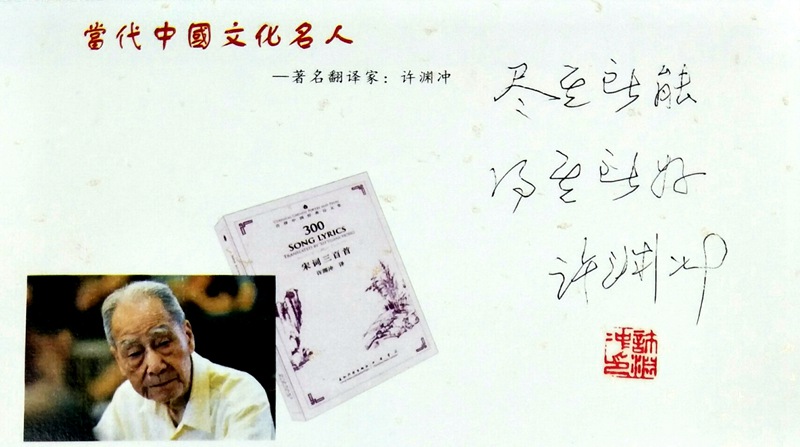 當代中國文化名人
—著名翻译家：许渊冲
尽其所能
得其所好
许渊冲
許渊冲印
300
SONG LYRICS
TRANSLATED BY XU YUANCHONG
宋词三百首
许渊冲 译